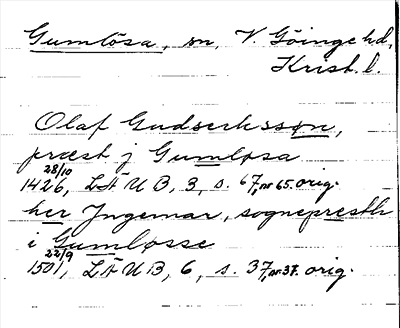 Gumlösa, sn, V. Göinge hd,
Krist. l.
Olaf Gudserksson,
præst j Gumløsa
28/10 1426, LÄUB, 3, s. 67, nr 65. orig.
her Jngemar, sognepresth
i Gumløsse
22/9 1501, LÄUB, 6, s. 37, nr 37. orig.